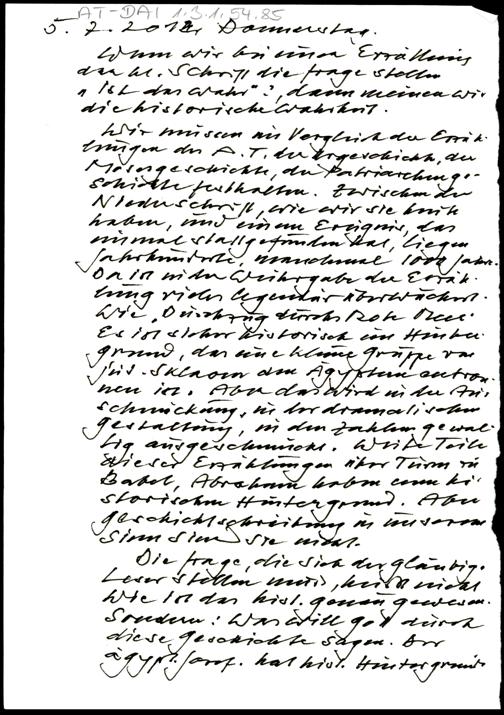 AT-DAI 1.3.1.54.85
5.7.2012, Donnerstag.
Wenn wir bei einer Erzählung
der hl. Schrift die Frage stellen
"Ist das wahr"?, dann meinen wir
die historische Wahrheit.
Wir müssen im Vergleich der Erzäh-
lungen des A.T. der Urgeschichte, der
Mosesgeschichte, der Patriarchenge-
schichte festhalten. Zwischen der
Niederschrift, wie wir sie heute
haben, und einem Ereignis, das
einmal stattgefunden hat, liegen
Jahrhunderte, manchmal 1000 Jahre.
Da ist in der Weitergabe der Erzäh-
lung vieles legendär überwuchert.
Wie "Durchzug durchs Rote Meer"
Es ist sicher historisch im Hinter-
grund, das eine kleine Gruppe von
jüd. Sklaven den Ägyptern entron-
nen ist. Aber das wird in der Aus-
schmückung, in der dramatischen
Gestaltung, in den Zahlen gewal-
tig ausgeschmückt. Weite Teile
dieser Erzählungen über Turm zu
Babel, Abraham haben einen hi-
storischen Hintergrund. Aber
Geschichtsschreibung in unserem
Sinn sind sie nicht.
Die Frage, die sich der gläubige
Leser stellen muss, heisst nicht
Wie ist das hist. genau gewesen.
Sondern: Was will Gott durch
diese Geschichte sagen. Der
ägypt. Josef. hat hist. Hintergrund